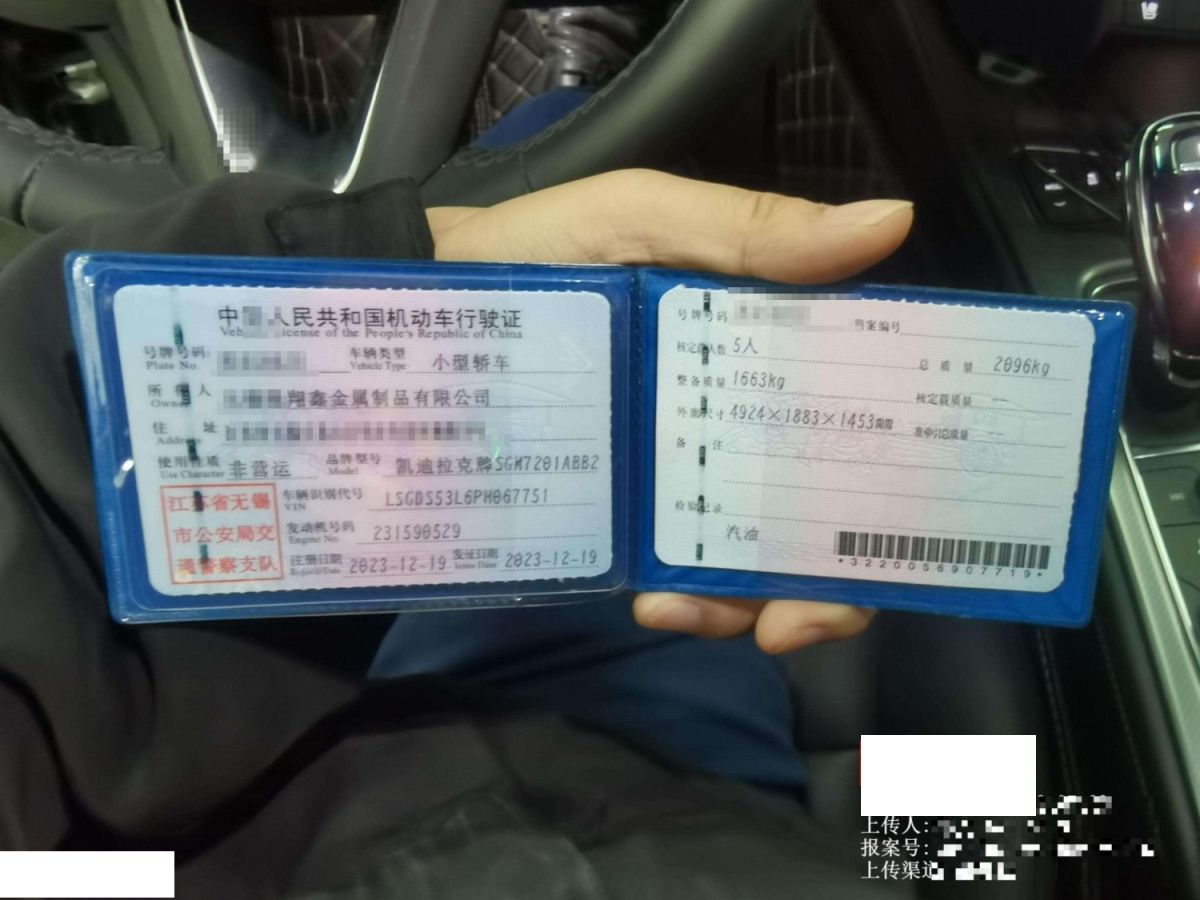 中 人民共和国机动车行驶证
Veh icense of the People's Republic of China
号牌号码
Plate No.
车辆类型 小型轿车
Vehicle Type
所 人 翔鑫金属制品有限公司
Owner
住 址
Address
使用性质 非营运 品牌型号 凯迪拉克牌SGM7201ABB2
Use Character Model
江苏省无锡
市公安局交
通警察支队
车辆识别代号 LSGDS53L6PH067751
VIN
发动机号码 231590529
Engine No.
注册日期 2023-12-19 发证日期 2023-12-19
Register Date Issue Date
号牌号码 档案编号
核定载人数 5人 总质量 2096kg
整备质量 1663kg 核定载质量 --
外廓尺寸 4924×1883×1453mm 准牵引总质量 --
备 注
检验记录
汽油
*3220056907719*
上传人:
报案号:
上传渠道